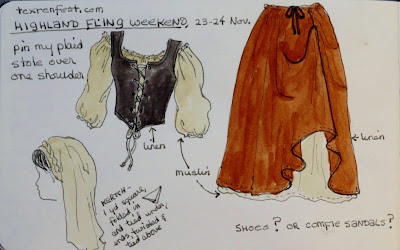 texrenfest.com
HIGHLAND FLING WEEKEND, 23-24 Nov.
pin my plaid
stole over
one shoulder
linen
muslin
linen
KERTCH -
1 yd square,
folded in
and tied under,
ends, twisted &
tied above
SHOES? OR COMFIE SANDALS?